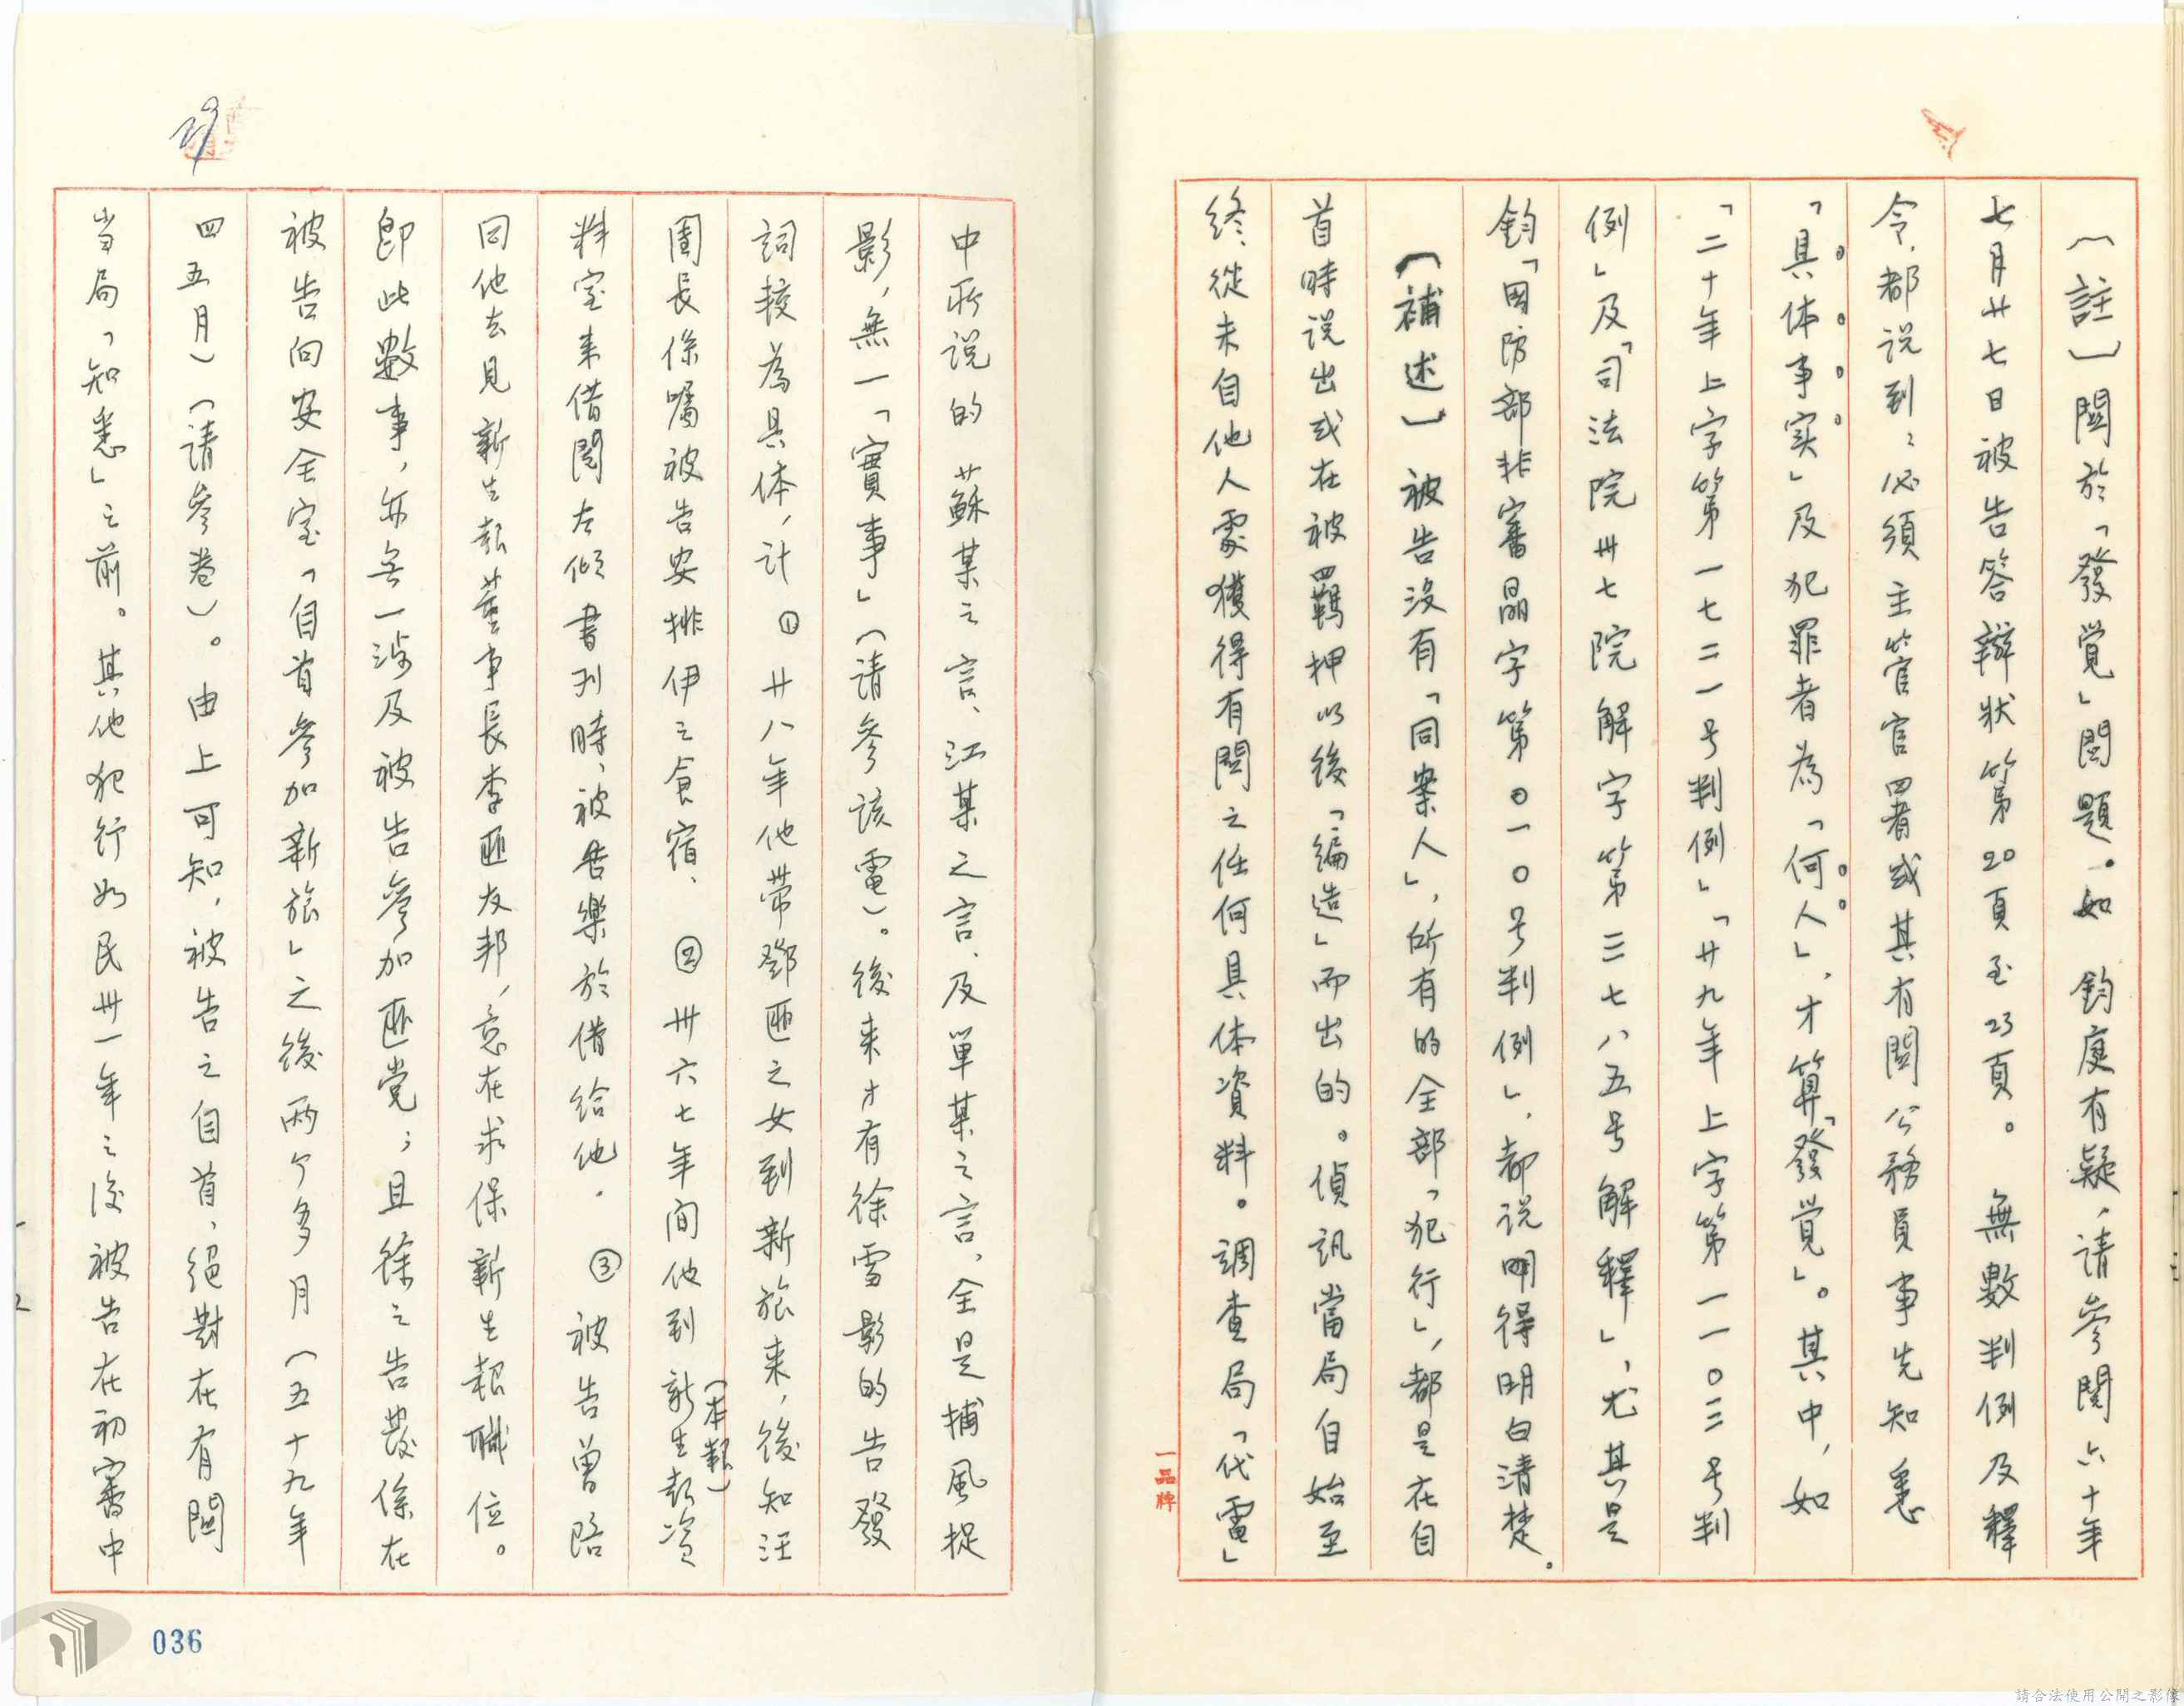 〔註〕關於「發覺」問題。如　鈞庭有疑，請參閱六十年
七月廿七日被告答辯狀第20頁至23頁。　無數判例及釋
令，都说到：必須主管官署或其有關公務員事先知悉
「具体事实」及犯罪者為「何人」，才算「發覚」。其中，如
「二十年上字第一七二一号判例」「廿九年上字第一一〇三号判
例」及「司法院卅七院解字第三七八五号解釋」，尤其是
鈞「國防部非審晶字第〇一〇号判例」，都说明得明白清楚。
〔補述〕被告没有「同案人」，所有的全部「犯行」，都是在自
首時说出或在被羈押以後「編造」而出的。偵訊當局自始至
終，從未自他人處獲得有關之任何具体資料。調查局「代電」
一品牌
中所说的蘇某之言、江某之言、及單某之言，全是捕風捉
影，無一「實事」（请參該電）。後来才有徐雪影的告發
詞較為具体，计①廿八年他带鄧匪之女到新旅来，後知汪
團長係囑被告安排伊之食宿、②卅六七年间他到新生報资
（本報）
料室来借閱左倾書刊時，被告樂於借给他．③被告曾陪
同他去見新生報董事長李匪友邦，意在求保新生報職位。
即此數事，亦无一涉及被告參加匪党；且徐之告發係在
被告向安全室「自首參加新旅」之後两个多月（五十九年
四五月）（請參卷）。由上可知，被告之自首，絕對在有關
当局「知悉」之前。其他犯行如民卅一年之後被告在初審中
29
036
請合法使用公開之影像